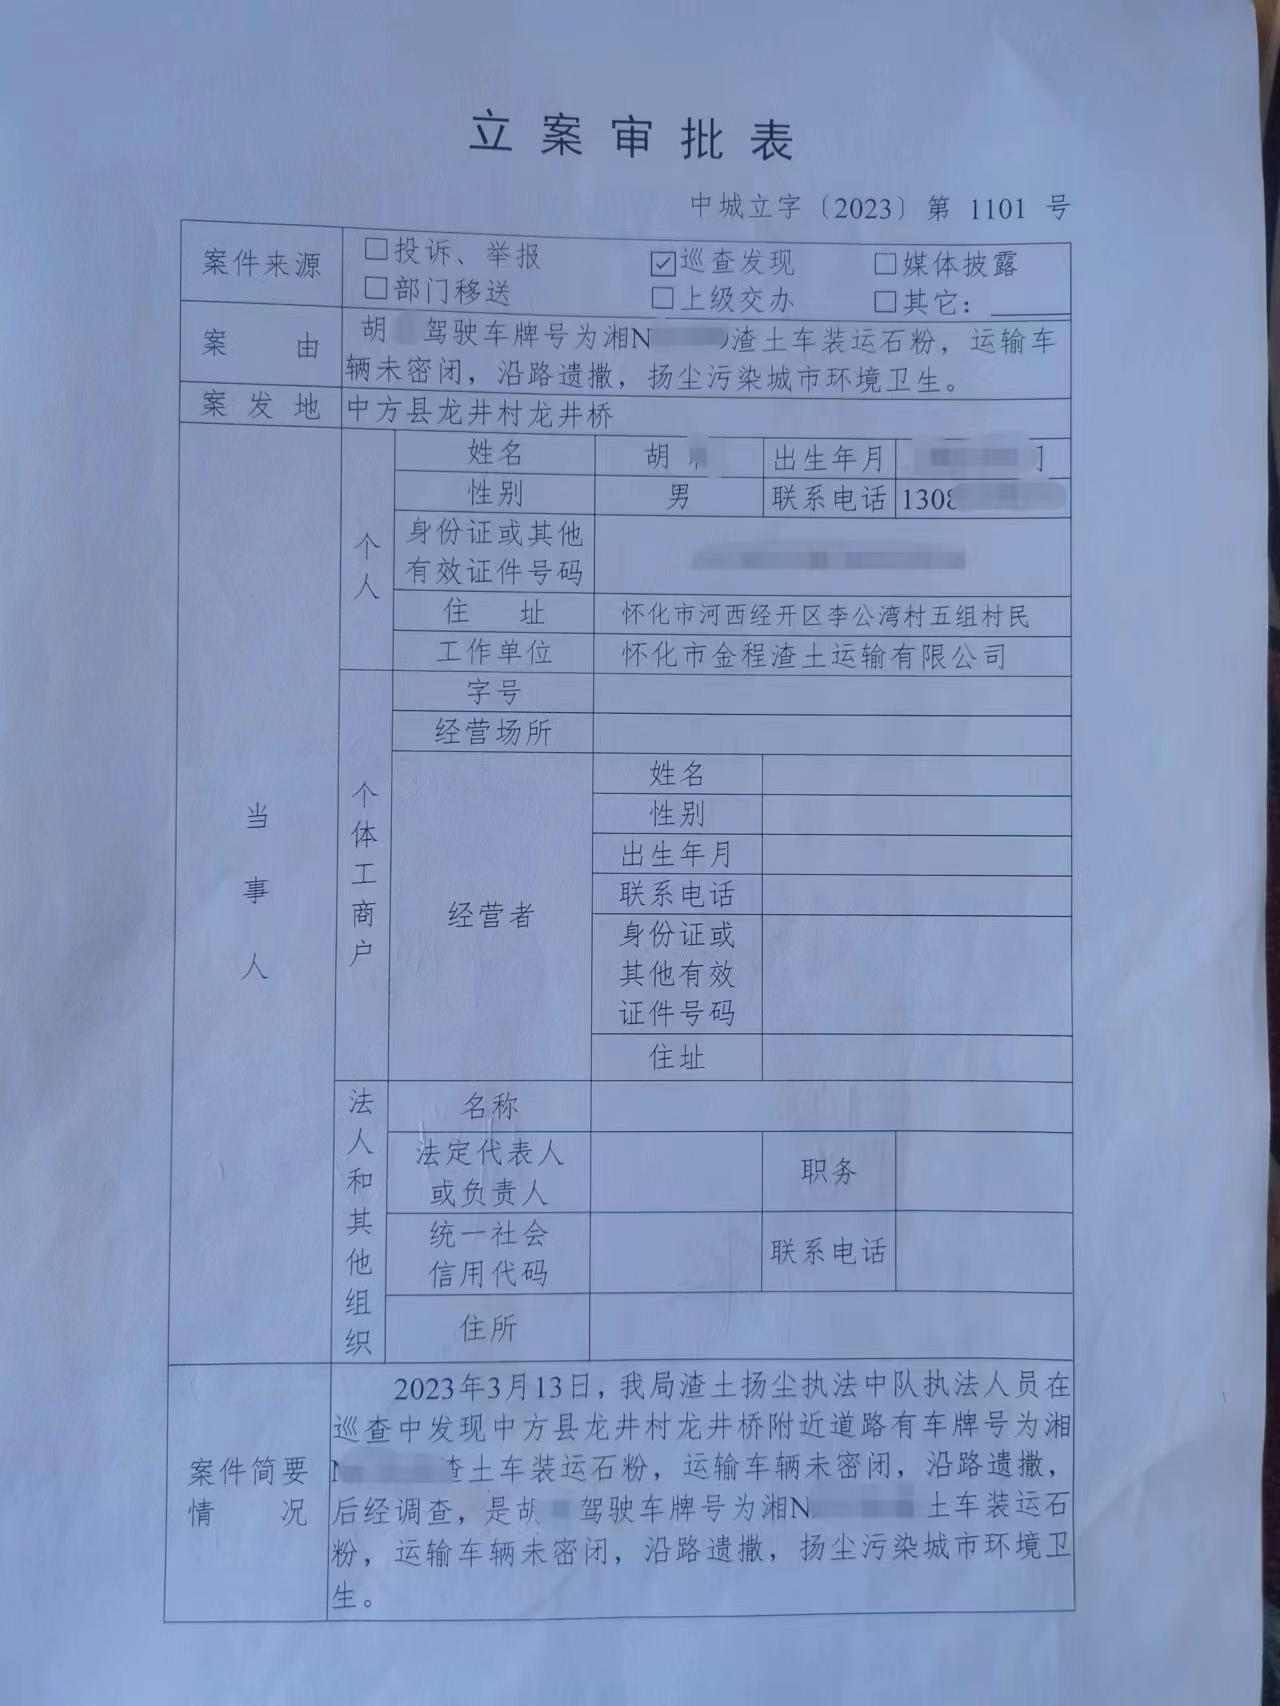 立案审批表
中城立字〔2023〕第 1101 号
案件来源
□投诉、举报 ☑巡查发现 □媒体披露
□部门移送 □上级交办 □其它：
案由
胡 驾驶车牌号为湘N 渣土车装运石粉，运输车
辆未密闭，沿路遗撒，扬尘污染城市环境卫生。
案发地 中方县龙井村龙井桥
当事人
个人
姓名 胡 出生年月
性别 男 联系电话 1308
身份证或其他
有效证件号码
住址 怀化市河西经开区李公湾村五组村民
工作单位 怀化市金程渣土运输有限公司
个体工商户
字号
经营场所
经营者
姓名
性别
出生年月
联系电话
身份证或
其他有效
证件号码
住址
法人和其他组织
名称
法定代表人
或负责人
职务
统一社会
信用代码
联系电话
住所
案件简要
情况
2023年3月13日，我局渣土扬尘执法中队执法人员在
巡查中发现中方县龙井村龙井桥附近道路有车牌号为湘
N 渣土车装运石粉，运输车辆未密闭，沿路遗撒，
后经调查，是胡 驾驶车牌号为湘N 土车装运石
粉，运输车辆未密闭，沿路遗撒，扬尘污染城市环境卫
生。